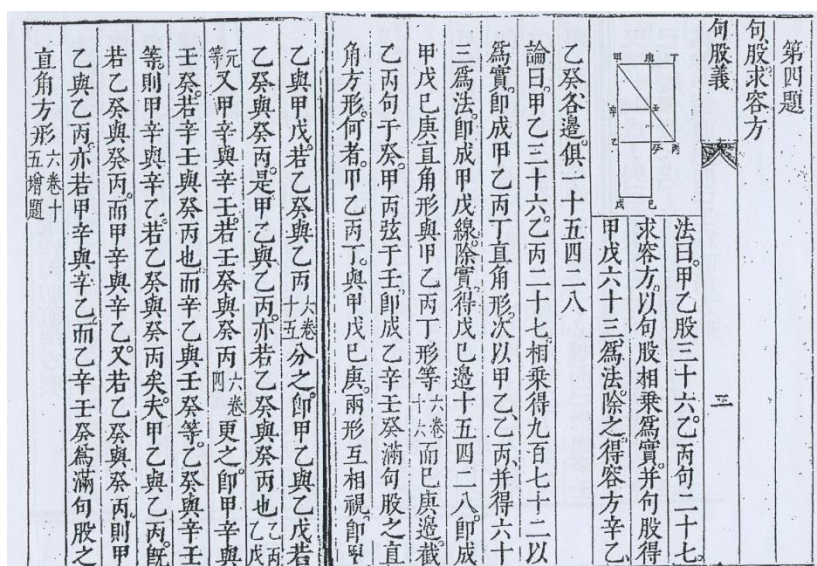 第四題
句股求容方
句股義 三
甲 庚 丁
辛 壬
乙 癸 丙
戊 己
法曰甲乙股三十六乙丙句二十七。
求容方。以句股相乘爲實。并句股得
甲戊六十三爲法。除之。得容方辛乙
乙癸各邊。俱一十五四二八
論曰。甲乙三十六。乙丙二十七。相乘得九百七十二以
爲實。卽成甲乙丙丁直角形。次以甲乙、乙丙、并得六十
三爲法。卽成甲戊線。除實。得戊己邊十五四二八。卽成
甲戊己庚直角形。與甲乙丙丁形等六卷十六而己庚邊。截
乙丙句于癸。甲丙弦于壬。卽成乙辛壬癸滿句股之直
角方形。何者。甲乙丙丁。與甲戊己庚。兩形互相視。卽甲
乙與甲戊。若乙癸與乙丙六卷十五分之。卽甲乙與乙戊若
乙癸與癸丙。是甲乙與乙丙。亦若乙癸與癸丙也乙丙乙戊
元等又甲辛與辛壬。若壬癸與癸丙六卷四更之。卽甲辛與
壬癸。若辛壬與癸丙也。而辛乙與壬癸等。乙癸與辛壬
等。則甲辛與辛乙。若乙癸與癸丙矣。夫甲乙與乙丙。旣
若乙癸與癸丙。而甲辛與辛乙。又若乙癸與癸丙。則甲
乙與乙丙。亦若甲辛與辛乙。而乙辛壬癸爲滿句股之
直角方形六卷十五增題